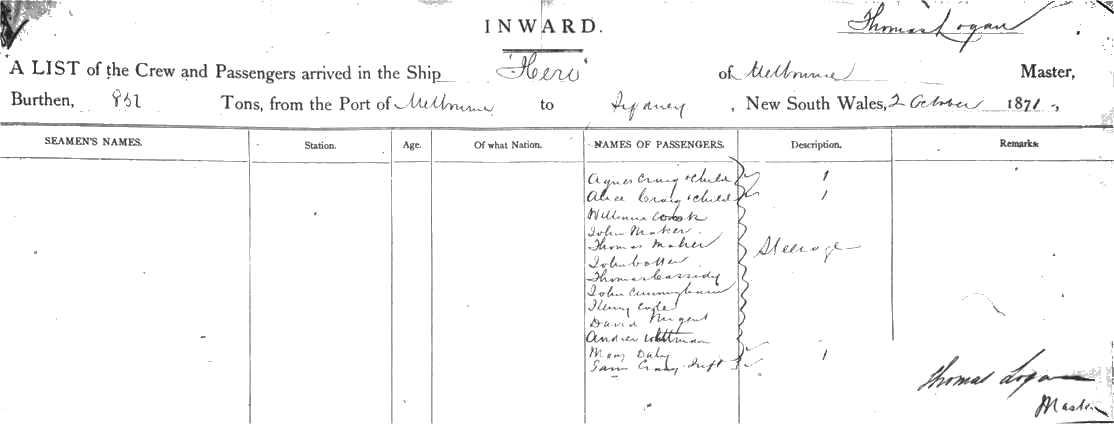 INWARD.
Thomas Logan
A LIST of the Crew and Passengers arrived in the Ship "Hero" of Melbourne Master,
Burthen, Tons, from the Port of Melbourne to Sydney, New South Wales, 2 October 1871
SEAMEN'S NAMES. Station. Age. Of what Nation. NAMES OF PASSENGERS. Description. Remarks.
Agnes Craig & Child 1
Alice Craig & Child 1
William Cook
John Maker
Thomas Maher
Steerage
John
Thomas Cassidy
John Cunningham
Henry
David Nugent
Andrew
Mary Daly 1
Craig
Thomas Logan
Master